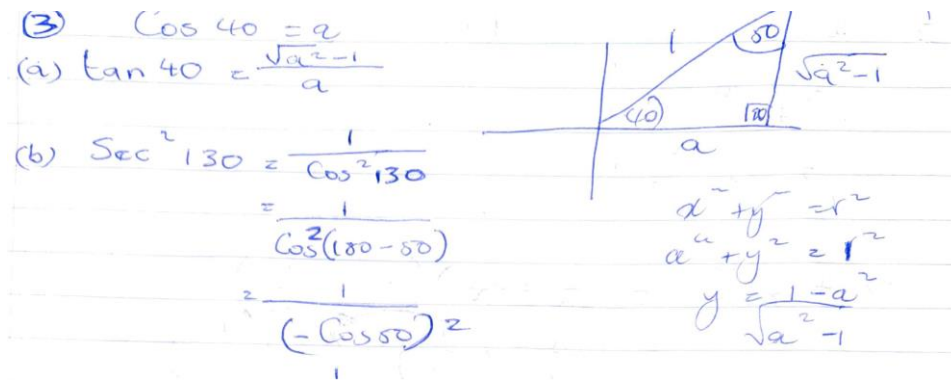 ③ Cos 40 = a
(a) tan 40 = √a²-1 / a
(b) Sec² 130 = 1 / Cos² 130
= 1 / Cos²(180-50)
= 1 / (-Cos 50)²
1
1
50
√a²-1
40
90
a
x² + y² = r²
a² + y² = 1²
y = 1-a²
√a²-1